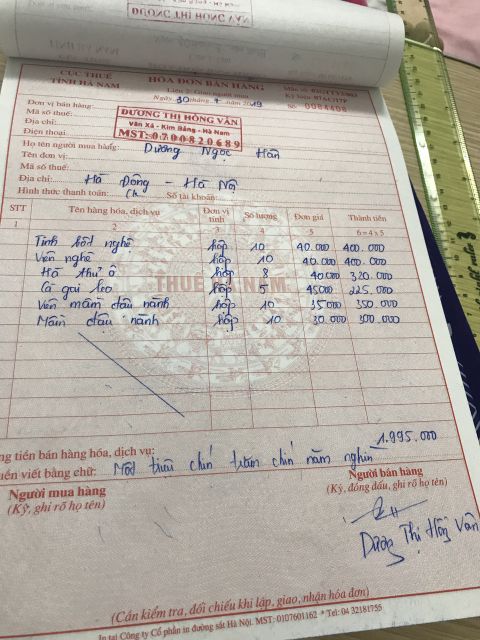 DƯƠNG THỊ HỒNG VÂN
CỤC THUẾ
TỈNH HÀ NAM
HÓA ĐƠN BÁN HÀNG
Liên 2: Giao người mua
Ngày 30 tháng 7 năm 2019
Số: 0084408
Đơn vị bán hàng:
Mã số thuế:
Địa chỉ:
Điện thoại:
DƯƠNG THỊ HỒNG VÂN
Văn Xá - Kim Bảng - Hà Nam
MST: 0700820689
Họ tên người mua hàng: Dương Ngọc Hân
Tên đơn vị:
Mã số thuế:
Địa chỉ: Hà Đông - Hà Nội
Hình thức thanh toán: Ck Số tài khoản:
STT Tên hàng hóa, dịch vụ Đơn vị tính Số lượng Đơn giá Thành tiền
1 2 3 4 5 6=4x5
Tinh bột nghệ hộp 10 40.000 400.000
Viên nghệ hộp 10 40.000 400.000
Hà thủ ô hộp 8 40.000 320.000
Cà gai leo hộp 5 45000 225.000
Viên mầm đậu nành hộp 10 35.000 350.000
Mầm đậu nành hộp 10 30.000 300.000
THUẾ NAM
ng tiền bán hàng hóa, dịch vụ: 1.995.000
tiền viết bằng chữ: Một triệu chín trăm chín năm nghìn
Người mua hàng
(Ký, ghi rõ họ tên)
Người bán hàng
(Ký, đóng dấu, ghi rõ họ tên)
Dương Thị Hồng Vân
(Cần kiểm tra, đối chiếu khi lập, giao, nhận hóa đơn)
In tại Công ty Cổ phần in đường sắt Hà Nội. MST: 0107601162 * Tel: 04 32181755